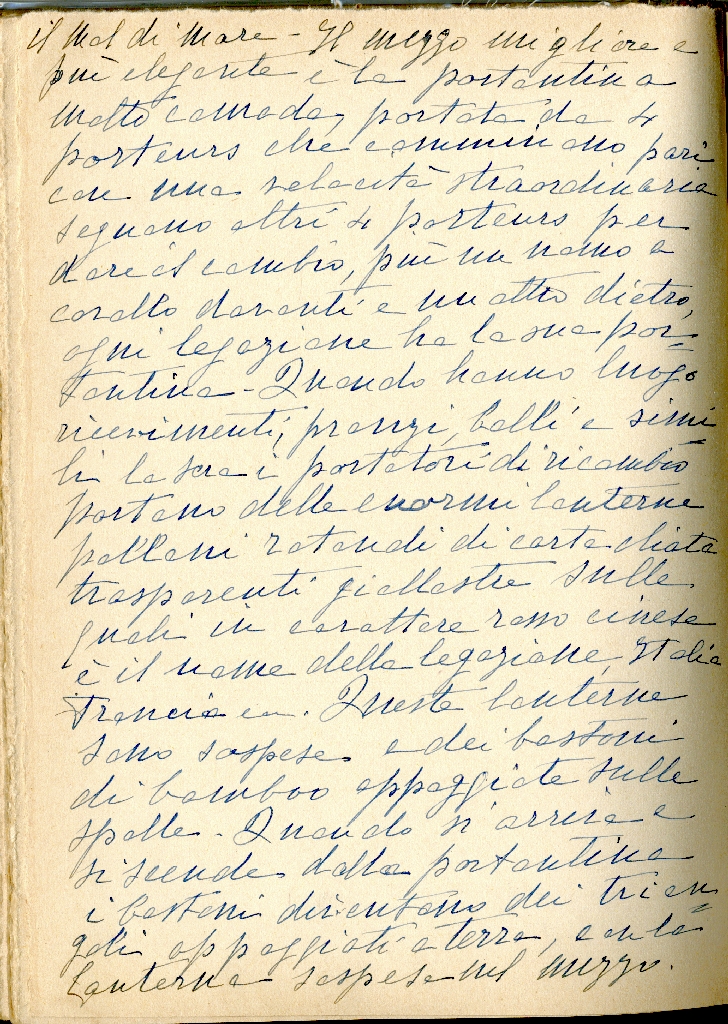 il mal di mare - Il mezzo migliore e
più elegante è la portantina
molto comoda, portata da 4
porteurs che camminano pari
con una velocità straordinaria
seguono altri 4 porteurs per
dare il cambio, più un uomo a
cavallo davanti e un altro dietro,
ogni legazione ha la sua por=
tantina - Quando hanno luogo
ricevimenti, pranzi, balli e simi=
li la sera i portatori di ricambio
portano delle enormi lanterne
palloni rotondi di carta oliata
trasparenti giallastre sulle
quali in carattere rosso cinese
è il nome della legazione, Italia
Francia ecc. Queste lanterne
sono sospese a dei bastoni
di bamboo appoggiate sulle
spalle - Quando si arriva e
si scende dalla portantina
i bastoni diventano dei trian=
goli appoggiati a terra, con la
lanterna sospesa nel mezzo.